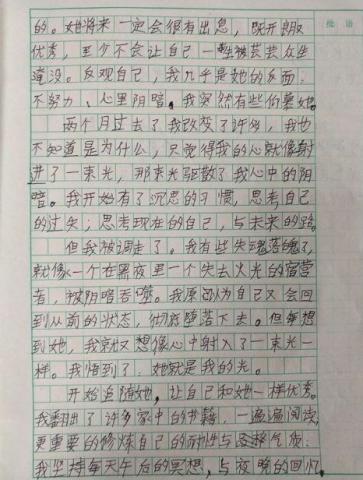 批语
的。她将来一定会很有出息，既开朗又
优秀，至少不会让自己一生被芸芸众生
淹没。反观自己，我几乎是她的反面：
不努力、心里阴暗。我突然有些仰慕她。
两个月过去了我改变了许多，我也
不知道是为什么，只觉得我的心就像射
进了一束光，那束光驱散了我心中的阴
暗。我开始有了沉思的习惯，思考自己
的过失；思考现在的自己，与未来的路。
但我被调走了。我有些失魂落魄了，
就像一个在黑夜里一个失去火光的宿营
者，被阴暗吞噬。我原以为自己又会回
到从前的状态，彻底堕落下去。但每想
到她，我就又想像心中射入了一束光一
样。我悟到了，她就是我的光。
开始追随她，让自己和她一样优秀。
我翻出了许多家中的书籍，一遍遍阅读，
更重要的修炼自己的耐性与各种气质：
我坚持每天午后的冥想，与夜晚的回忆，